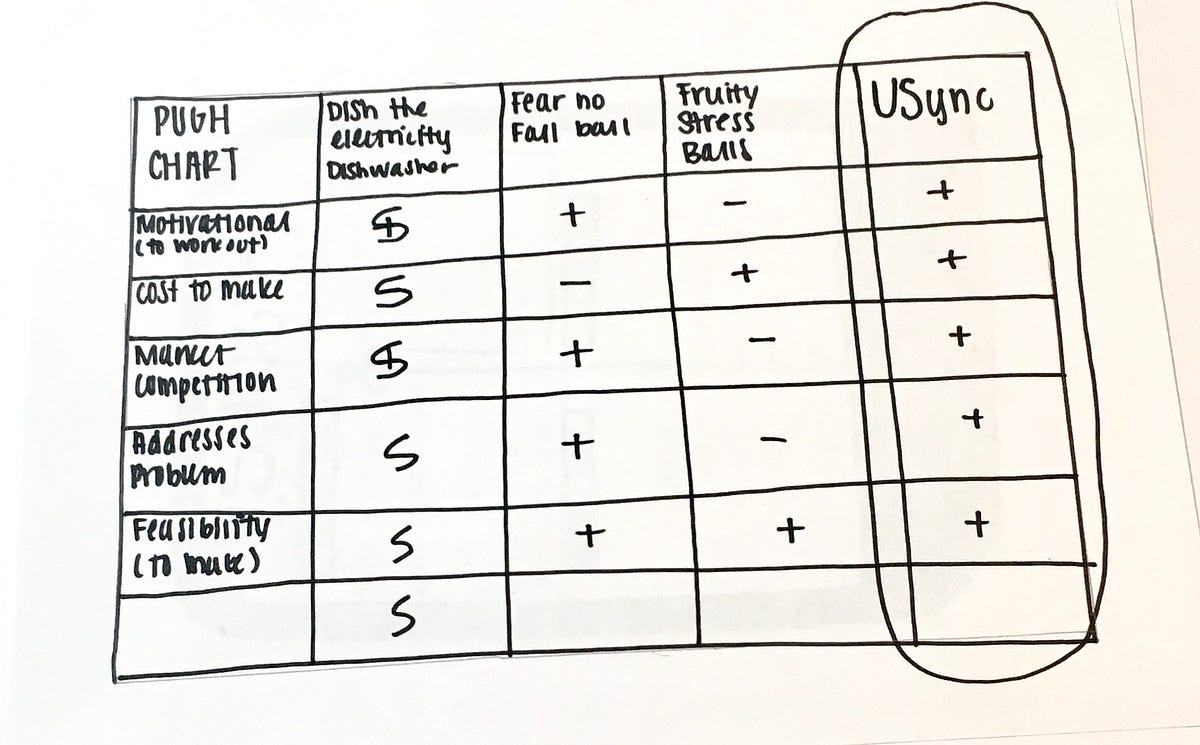 PUGH
CHART
Dish the
electricity
Dishwasher
Fear no
Fall ball
Fruity
Stress
Balls
USync
Motivational
(to work out)
S
+
-
+
cost to make
S
-
+
+
Market
competition
S
+
-
+
Addresses
Problem
S
+
-
+
Feasibility
(to make)
S
+
+
+
S